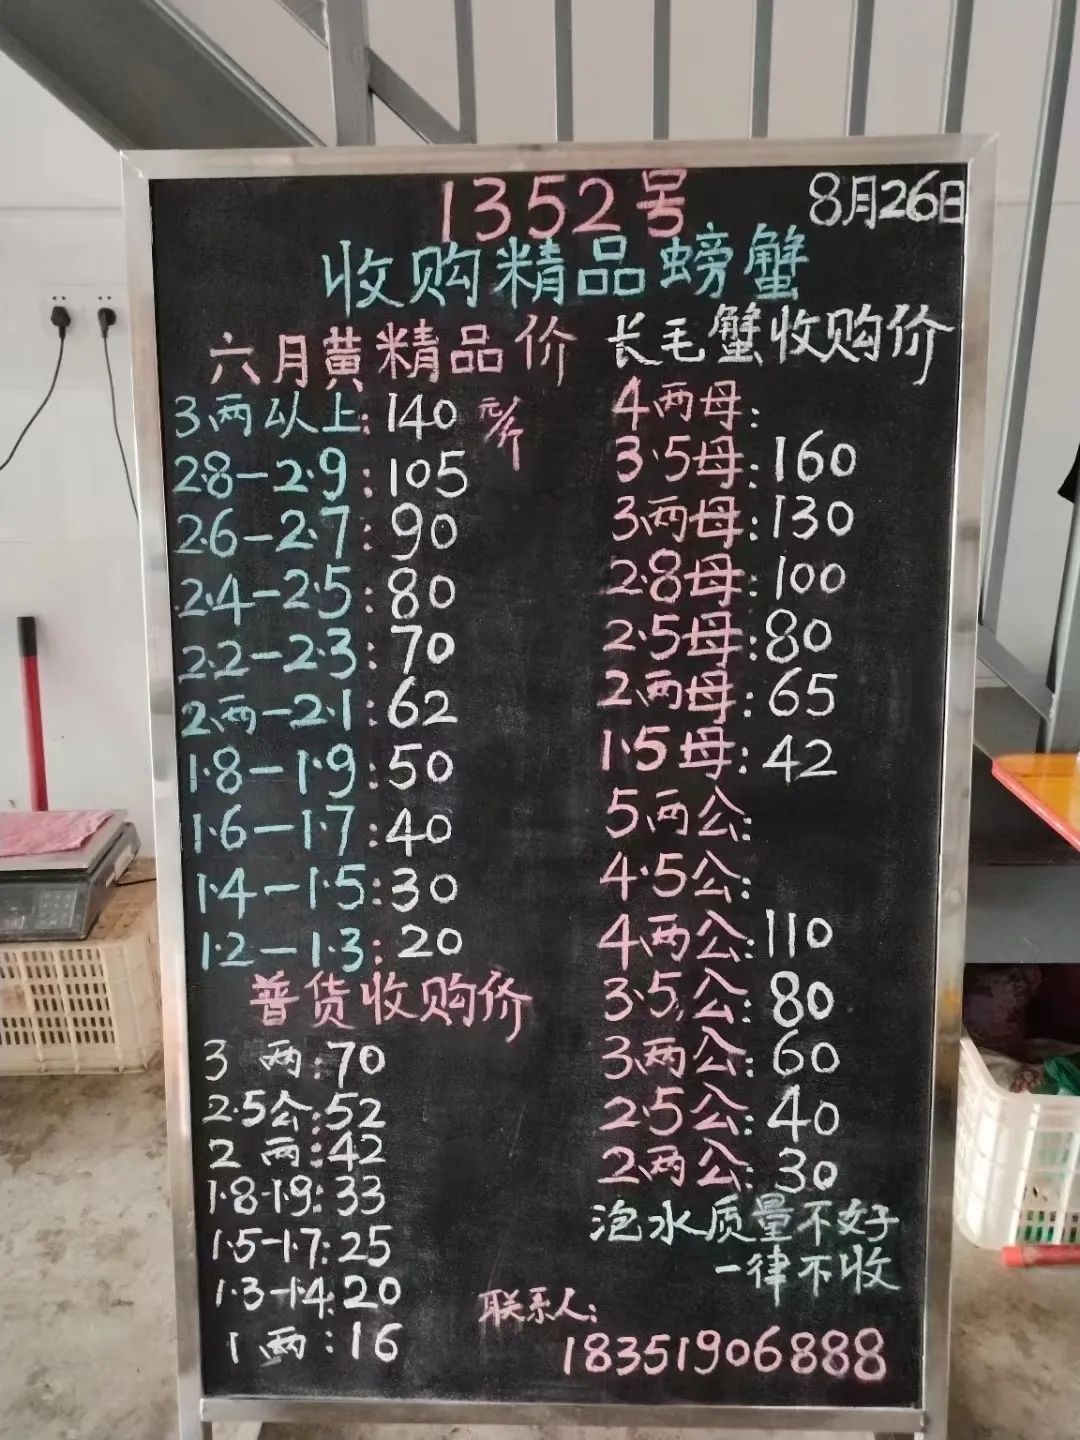 1352号
8月26日
收购精品螃蟹
六月黄精品价
3两以上:140元/斤
2.8-2.9:105
2.6-2.7:90
2.4-2.5:80
2.2-2.3:70
2两-2.1:62
1.8-1.9:50
1.6-1.7:40
1.4-1.5:30
1.2-1.3:20
普货收购价
3两:70
2.5公:52
2两:42
1.8-1.9:33
1.5-1.7:25
1.3-1.4:20
1两:16
长毛蟹收购价
4两母:
3.5母:160
3两母:130
2.8母:100
2.5母:80
2两母:65
1.5母:42
5两公:
4.5公:
4两公:110
3.5公:80
3两公:60
2.5公:40
2两公:30
泡水质量不好
一律不收
联系人:
18351906888